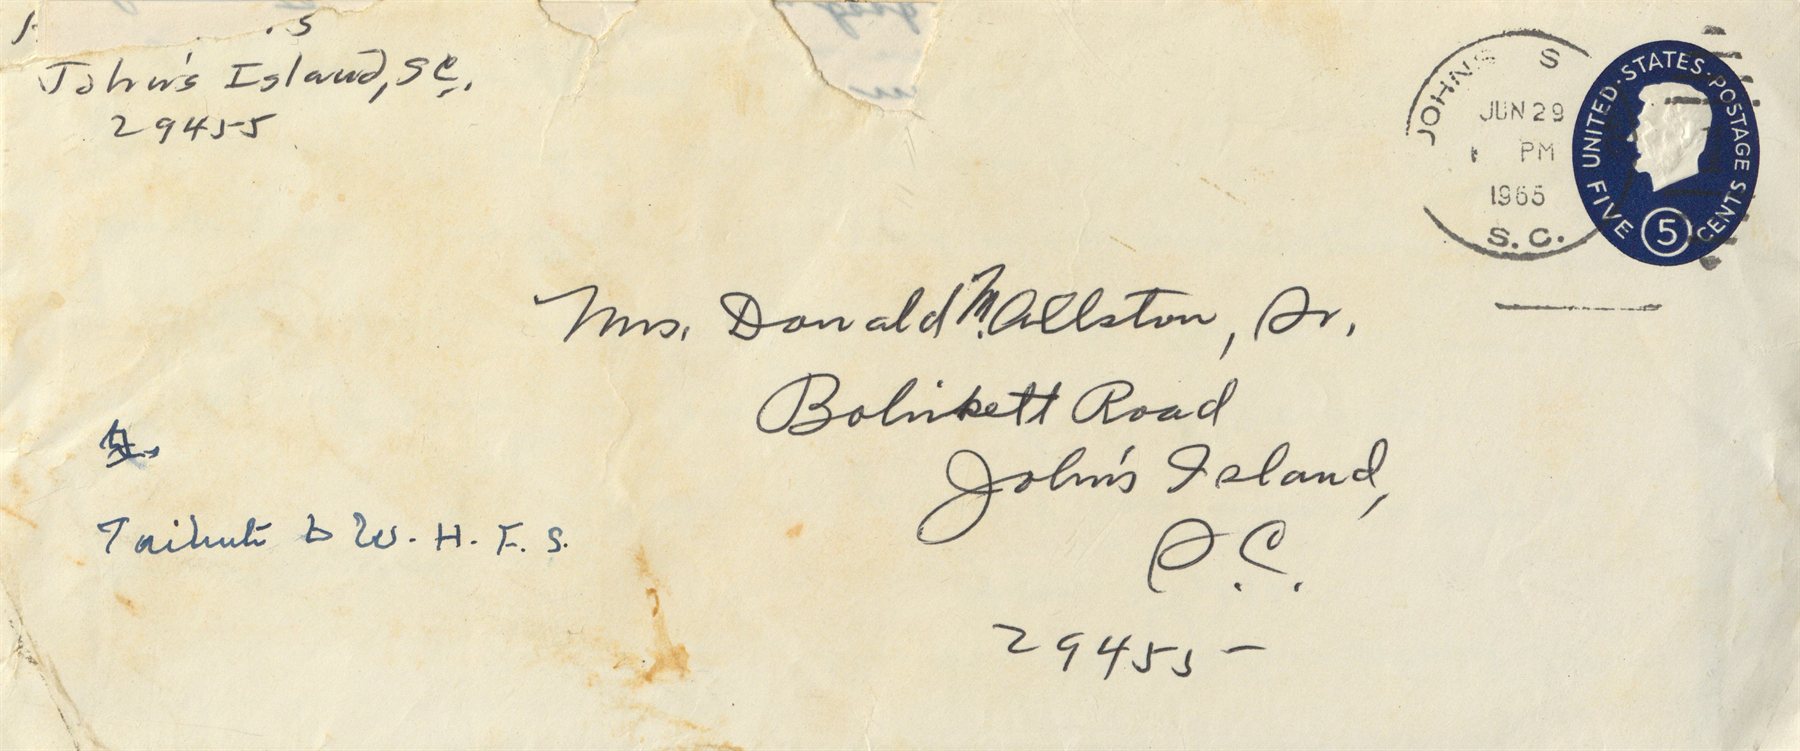 John's Island, S.C.
29455
JOHNS S
JUN 29
PM
1965
S.C.
UNITED · STATES · POSTAGE
FIVE 5 CENTS
Mrs. Donald M. Allston, Sr.
Bohickett Road
John's Island,
S.C.
29455
Tribute to W. H. F. S.